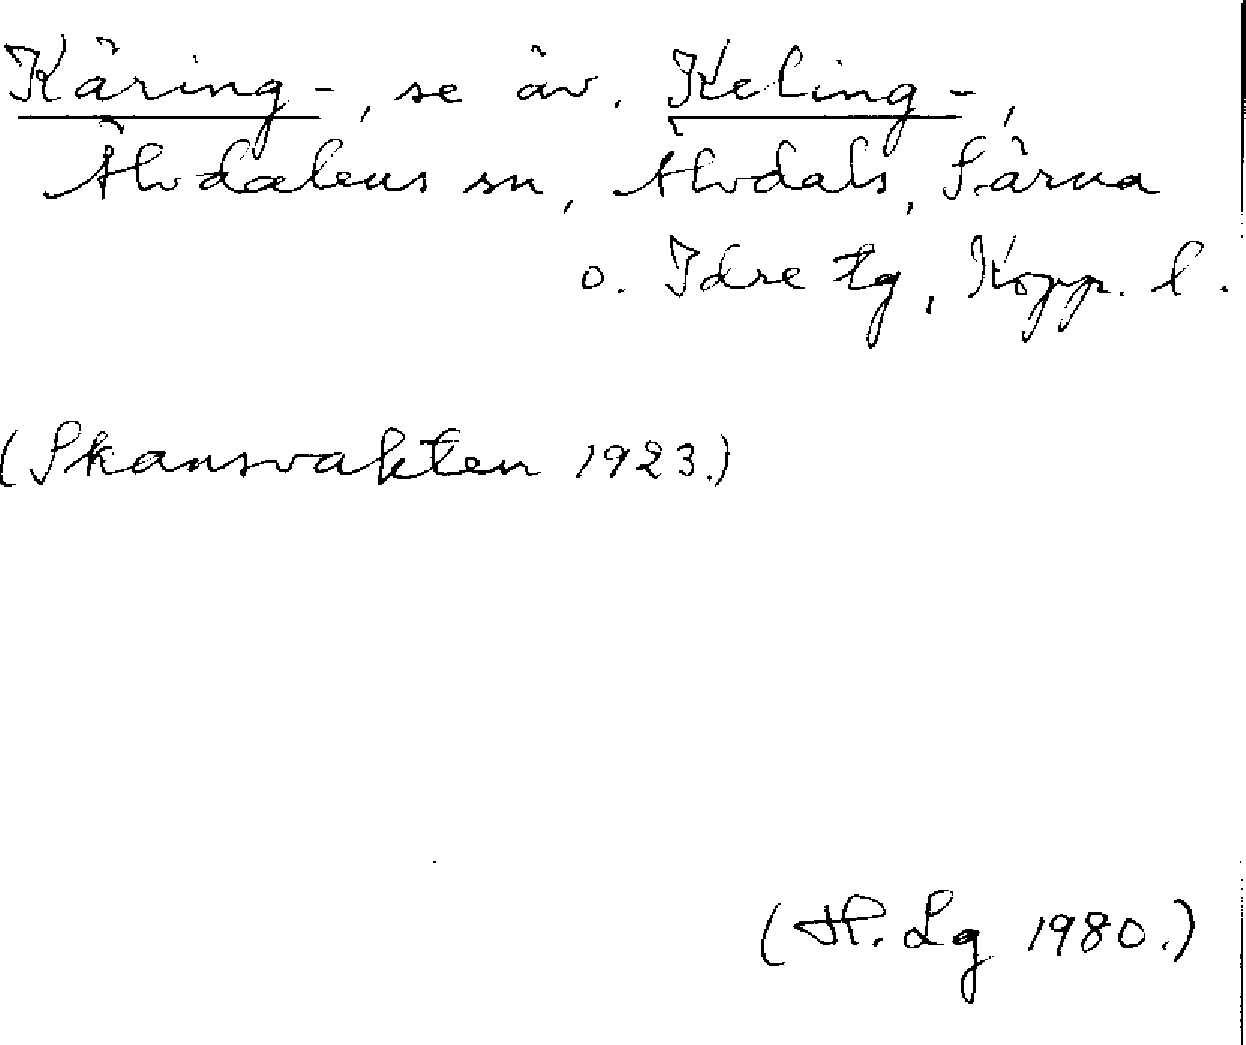 Käring-, se äv. Keling-,
Älvdalens sn, Älvdals, Särna
o. Idre tg, Kopp. l.
(Skansvakten 1923.)
(H. Lg 1980.)